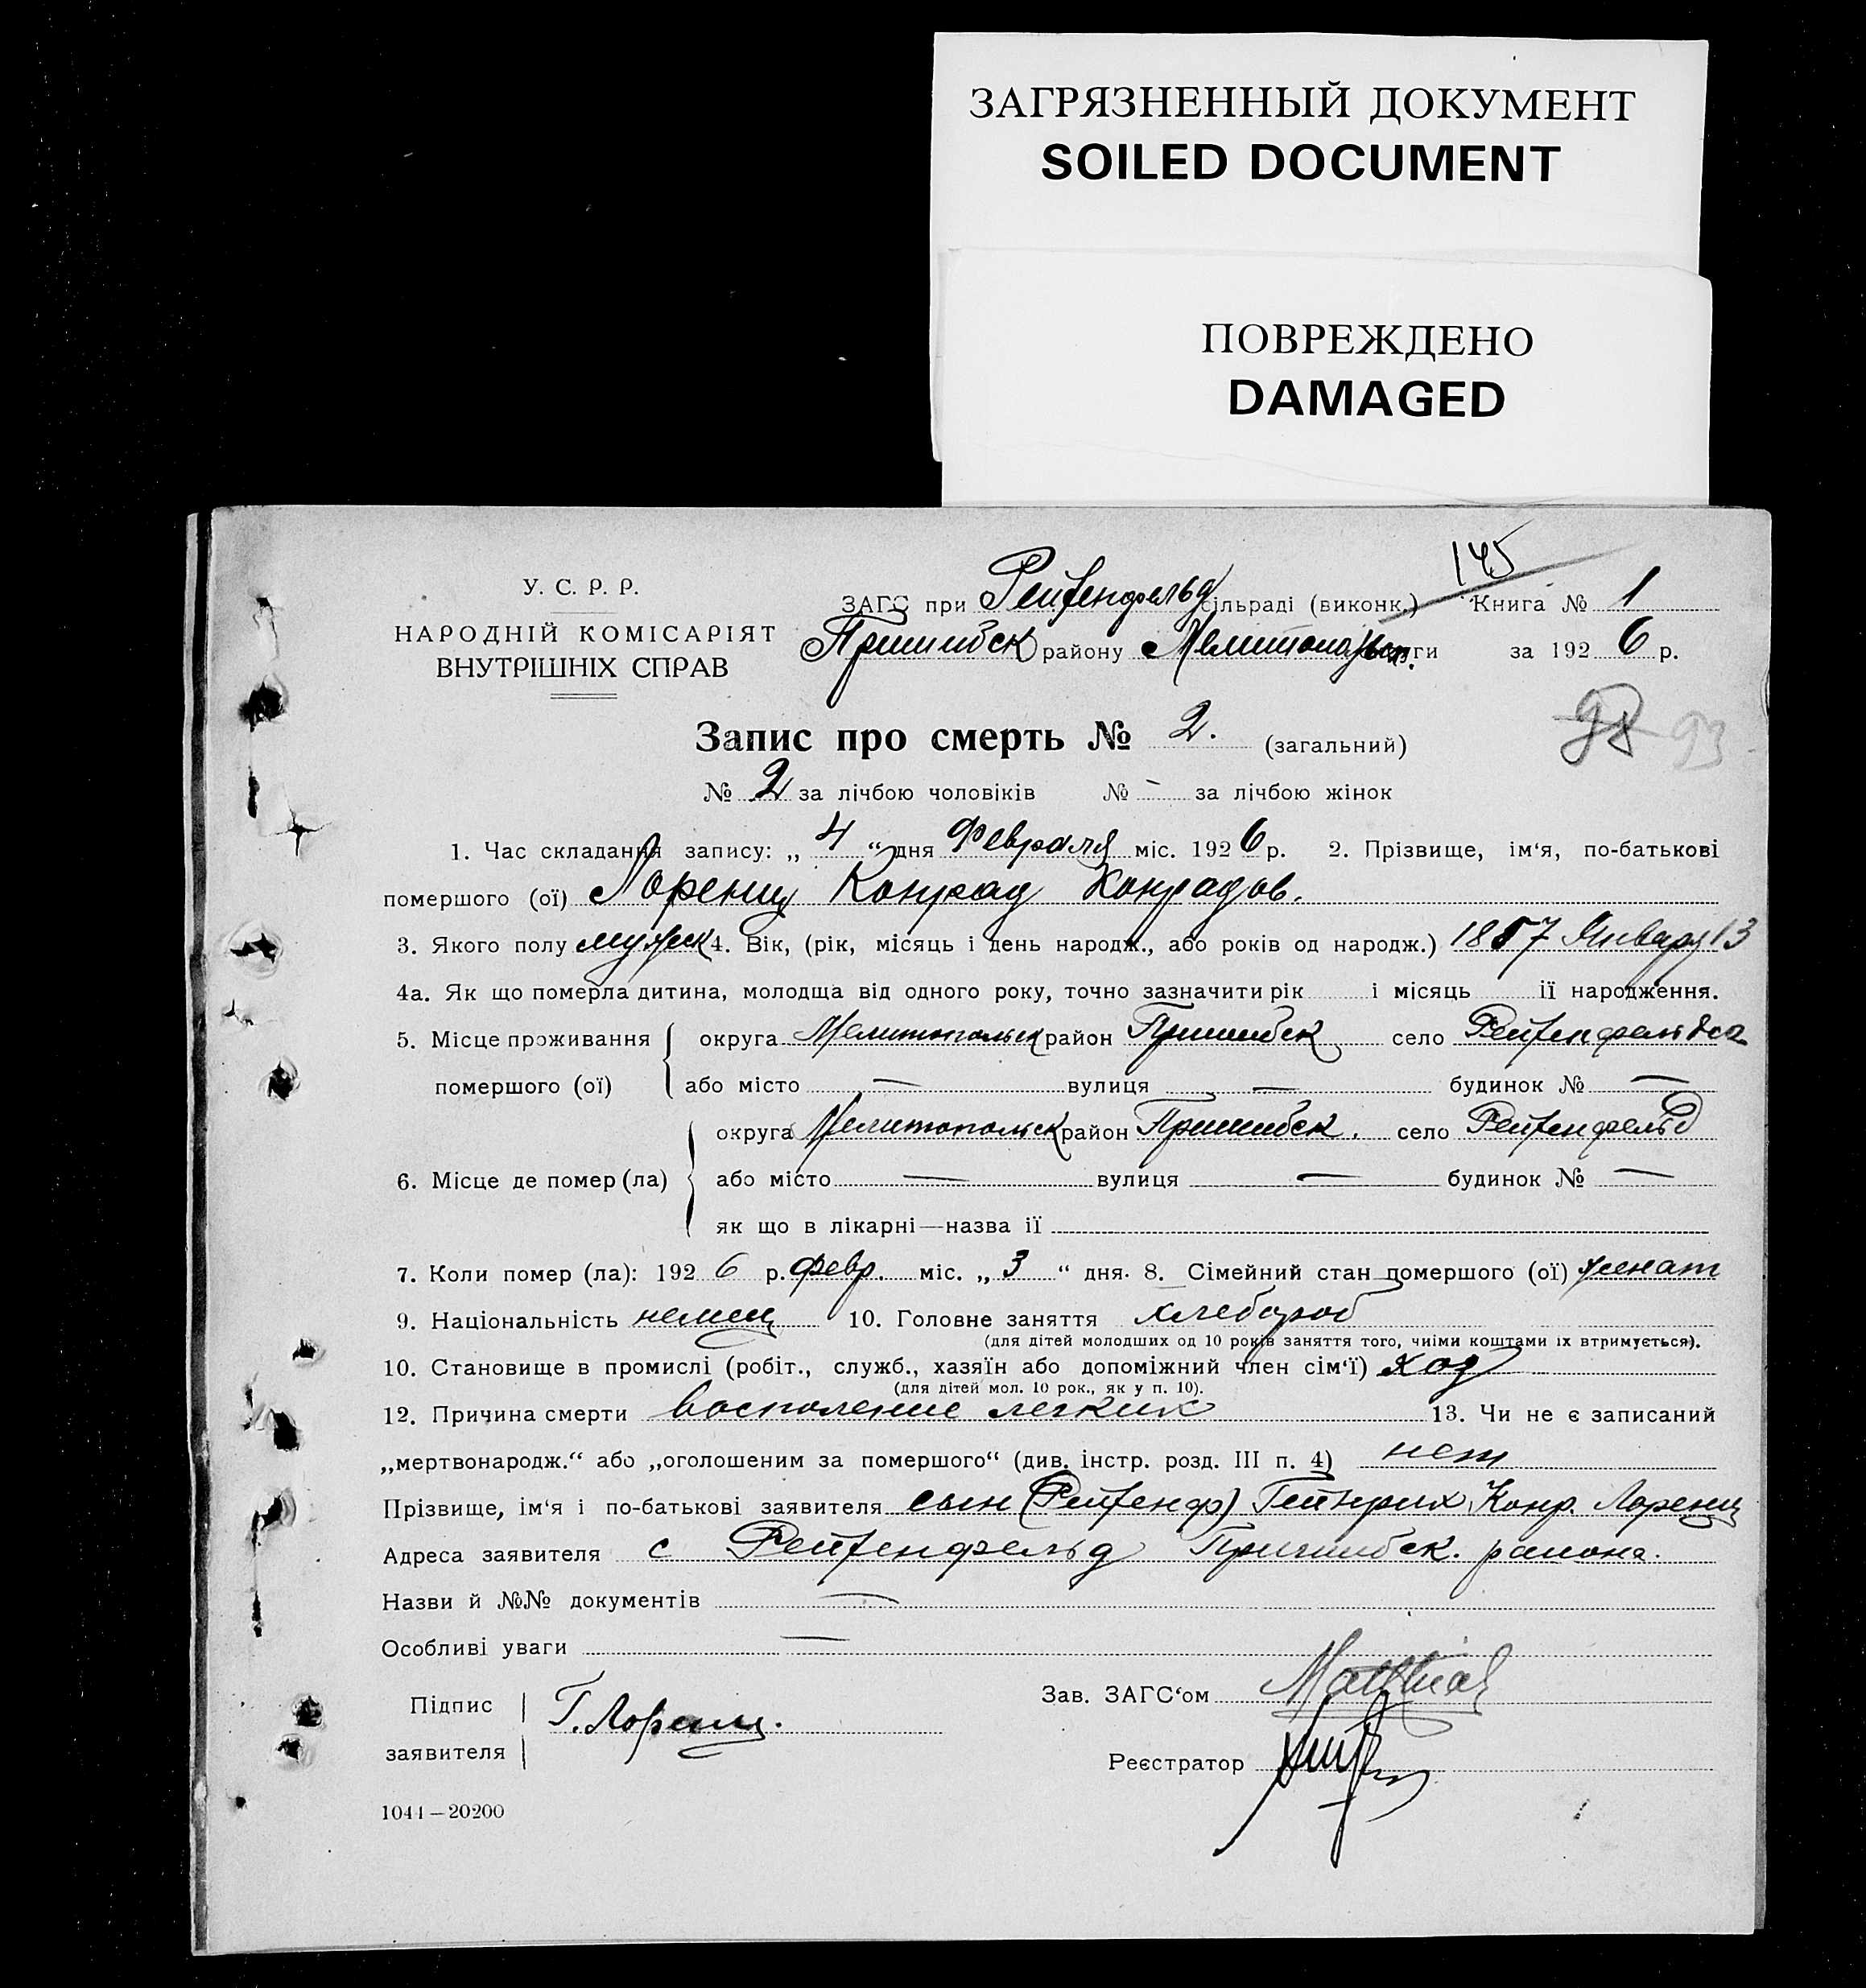 ЗАГРЯЗНЕННЫЙ ДОКУМЕНТ
SOILED DOCUMENT
ПОВРЕЖДЕНО
DAMAGED
145
У. С. Р. Р.
НАРОДНІЙ КОМІСАРІЯТ
ВНУТРІШНІХ СПРАВ
ЗАГС при Рейфенфельд сільраді (виконк.) Книга № 1
Пришибск району Мелитопольск. за 1926 р.
98 93
Запис про смерть № 2. (загальний)
№ 2 за лічбою чоловіків № – за лічбою жінок
1. Час складання запису: „ 4 “ дня Февраля міс. 1926 р. 2. Прізвище, ім‘я, по-батькові
помершого (ої) Лоренц Конрад Конрадов.
3. Якого полу мужск 4. Вік, (рік, місяць і день народж., або років од народж.) 1857 Января 13
4а. Як що померла дитина, молодща від одного року, точно зазначити рік і місяць її народження.
5. Місце проживання округа Мелитопольск район Пришибск село Рейфенфельд
помершого (ої) або місто — вулиця — будинок № —
округа Мелитопольск район Пришибск. село Рейфенфельд
6. Місце де помер (ла) або місто — вулиця — будинок № —
як що в лікарні—назва її
7. Коли помер (ла): 1926 р. февр. міс. „ 3 “ дня. 8. Сімейний стан помершого (ої) женат
9. Національність немец 10. Головне заняття хлебороб
(для дітей молодших од 10 років заняття того, чиїми коштами їх втримується).
10. Становище в промислі (робіт., служб., хазяїн або допоміжний член сім‘ї) хоз
(для дітей мол. 10 рок., як у п. 10).
12. Причина смерти воспаление легких 13. Чи не є записаний
„мертвонародж.“ або „оголошеним за помершого“ (див. інстр. розд. III п. 4) нет
Прізвище, ім‘я і по-батькові заявителя сын (Рейфенф) Гейнрих Конр. Лоренц
Адреса заявителя с Рейфенфельд Пришибск. района.
Назви й №№ документів —
Особливі уваги —
Підпис заявителя Г. Лоренц.
Зав. ЗАГС‘ом Matthias
Реєстратор
1041—20200